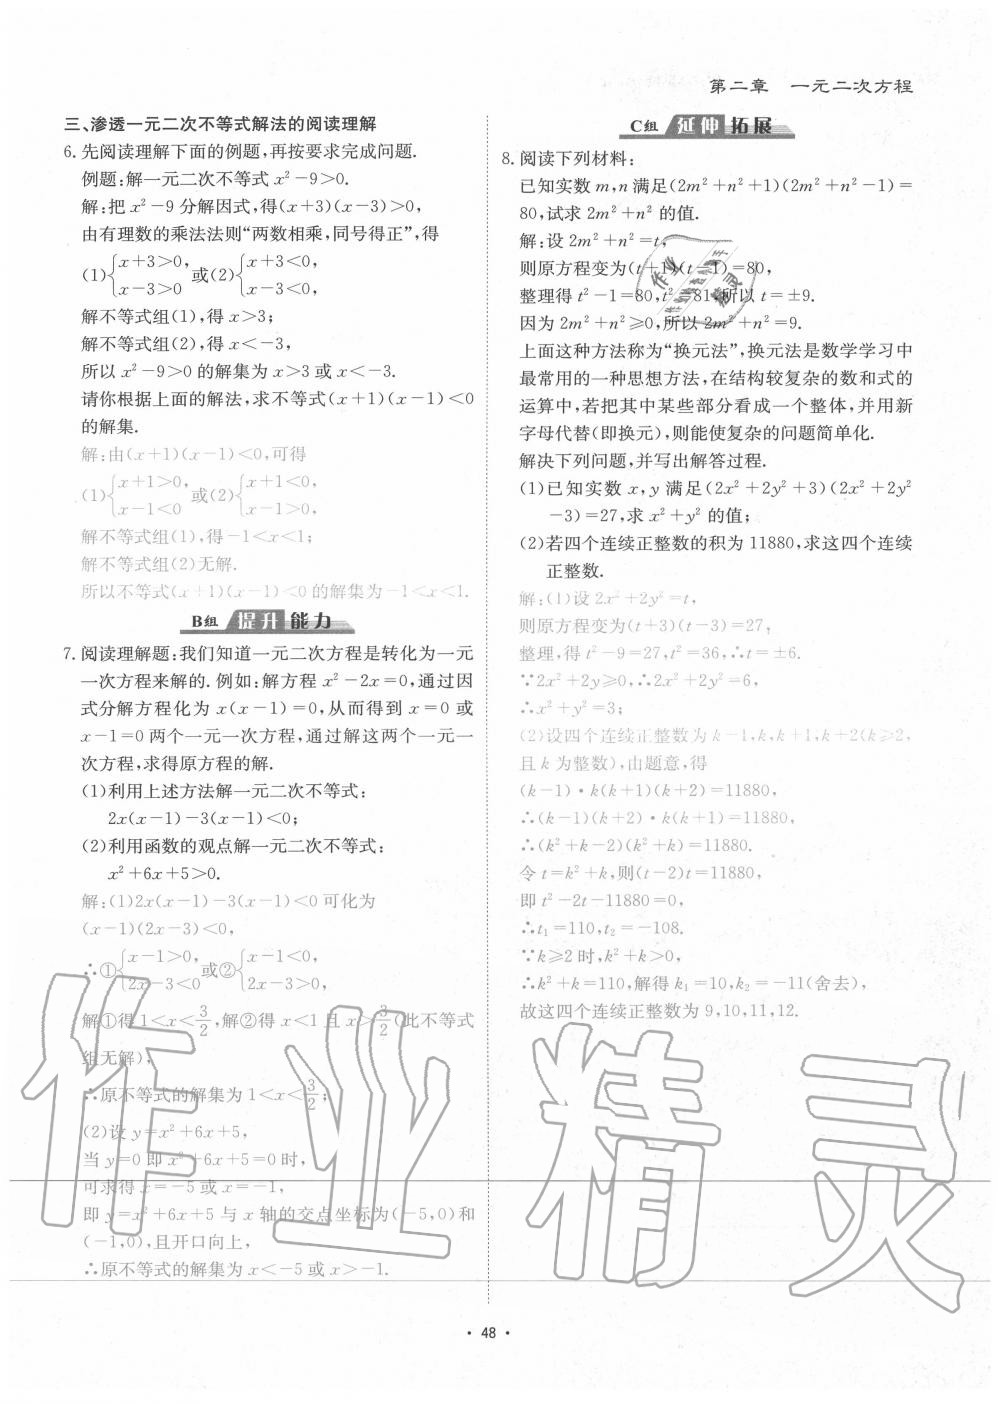 第二章 一元二次方程
三、渗透一元二次不等式解法的阅读理解
6. 先阅读理解下面的例题,再按要求完成问题.
例题:解一元二次不等式 x²-9>0.
解:把 x²-9 分解因式,得(x+3)(x-3)>0,
由有理数的乘法法则“两数相乘,同号得正”,得
(1){x+3>0, x-3>0 或(2){x+3<0, x-3<0,
解不等式组(1),得 x>3;
解不等式组(2),得 x<-3,
所以 x²-9>0 的解集为 x>3 或 x<-3.
请你根据上面的解法,求不等式(x+1)(x-1)<0
的解集.
解:由(x+1)(x-1)<0,可得
(1){x+1>0, x-1<0 或(2){x+1<0, x-1>0,
解不等式组(1),得-1<x<1;
解不等式组(2)无解.
所以不等式(x+1)(x-1)<0 的解集为-1<x<1.
B组 提升 能力
7. 阅读理解题:我们知道一元二次方程是转化为一元
一次方程来解的.例如:解方程 x²-2x=0,通过因
式分解方程化为 x(x-1)=0,从而得到 x=0 或
x-1=0 两个一元一次方程,通过解这两个一元一
次方程,求得原方程的解.
(1)利用上述方法解一元二次不等式:
2x(x-1)-3(x-1)<0;
(2)利用函数的观点解一元二次不等式:
x²+6x+5>0.
解:(1)2x(x-1)-3(x-1)<0 可化为
(x-1)(2x-3)<0,
∴①{x-1>0, 2x-3<0 或②{x-1<0, 2x-3>0,
解①得 1<x<3/2,解②得 x<1 且 x>3/2(此不等式
组无解),
∴原不等式的解集为 1<x<3/2;
(2)设 y=x²+6x+5,
当 y=0 即 x²+6x+5=0 时,
可求得 x=-5 或 x=-1,
即 y=x²+6x+5 与 x 轴的交点坐标为(-5,0)和
(-1,0),且开口向上,
∴原不等式的解集为 x<-5 或 x>-1.
C组 延伸 拓展
8. 阅读下列材料:
已知实数 m,n 满足(2m²+n²+1)(2m²+n²-1)=
80,试求 2m²+n² 的值.
解:设 2m²+n²=t,
则原方程变为(t+1)(t-1)=80,
整理得 t²-1=80,t²=81,所以 t=±9.
因为 2m²+n²≥0,所以 2m²+n²=9.
上面这种方法称为“换元法”,换元法是数学学习中
最常用的一种思想方法,在结构较复杂的数和式的
运算中,若把其中某些部分看成一个整体,并用新
字母代替(即换元),则能使复杂的问题简单化.
解决下列问题,并写出解答过程.
(1)已知实数 x,y 满足(2x²+2y²+3)(2x²+2y²
-3)=27,求 x²+y² 的值;
(2)若四个连续正整数的积为 11880,求这四个连续
正整数.
解:(1)设 2x²+2y²=t,
则原方程变为(t+3)(t-3)=27,
整理,得 t²-9=27,t²=36,∴t=±6.
∵2x²+2y≥0,∴2x²+2y²=6,
∴x²+y²=3;
(2)设四个连续正整数为 k-1,k,k+1,k+2(k≥2,
且 k 为整数),由题意,得
(k-1)·k(k+1)(k+2)=11880,
∴(k-1)(k+2)·k(k+1)=11880,
∴(k²+k-2)(k²+k)=11880.
令 t=k²+k,则(t-2)t=11880,
即 t²-2t-11880=0,
∴t₁=110,t₂=-108.
∵k≥2 时,k²+k>0,
∴k²+k=110,解得 k₁=10,k₂=-11(舍去),
故这四个连续正整数为 9,10,11,12.
作业精灵
· 48 ·